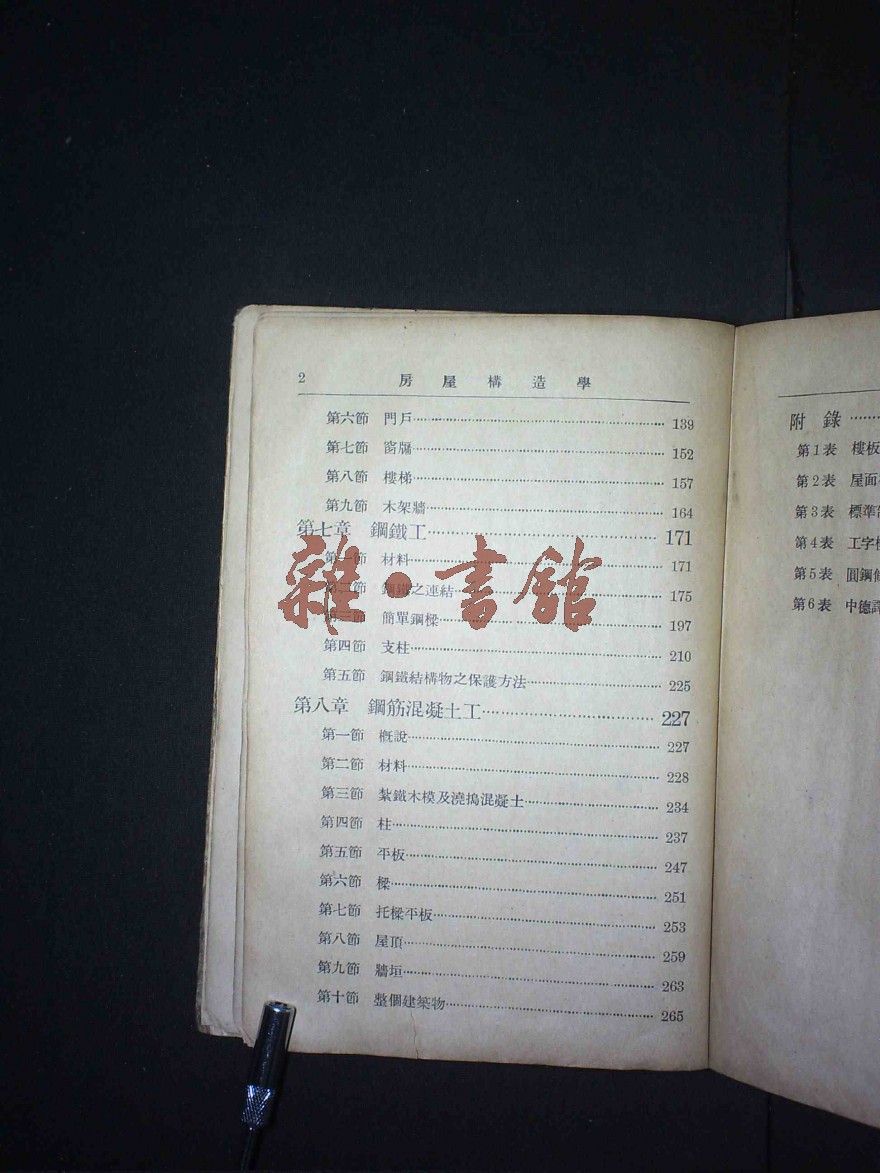 2 房屋構造學
第六節 門戶 139
第七節 窗牖 152
第八節 樓梯 157
第九節 木架牆 164
第七章 鋼鐵工 171
第一節 材料 171
第二節 鋼鐵之連結 175
第三節 簡單鋼樑 197
第四節 支柱 210
第五節 鋼鐵結構物之保護方法 225
第八章 鋼筋混凝土工 227
第一節 概說 227
第二節 材料 228
第三節 紮鐵木模及澆搗混凝土 234
第四節 柱 237
第五節 平板 247
第六節 樑 251
第七節 托樑平板 253
第八節 屋頂 259
第九節 牆垣 263
第十節 整個建築物 265
雜·書館
附錄
第1表 樓板
第2表 屋面
第3表 標準
第4表 工字
第5表 圓鋼
第6表 中德